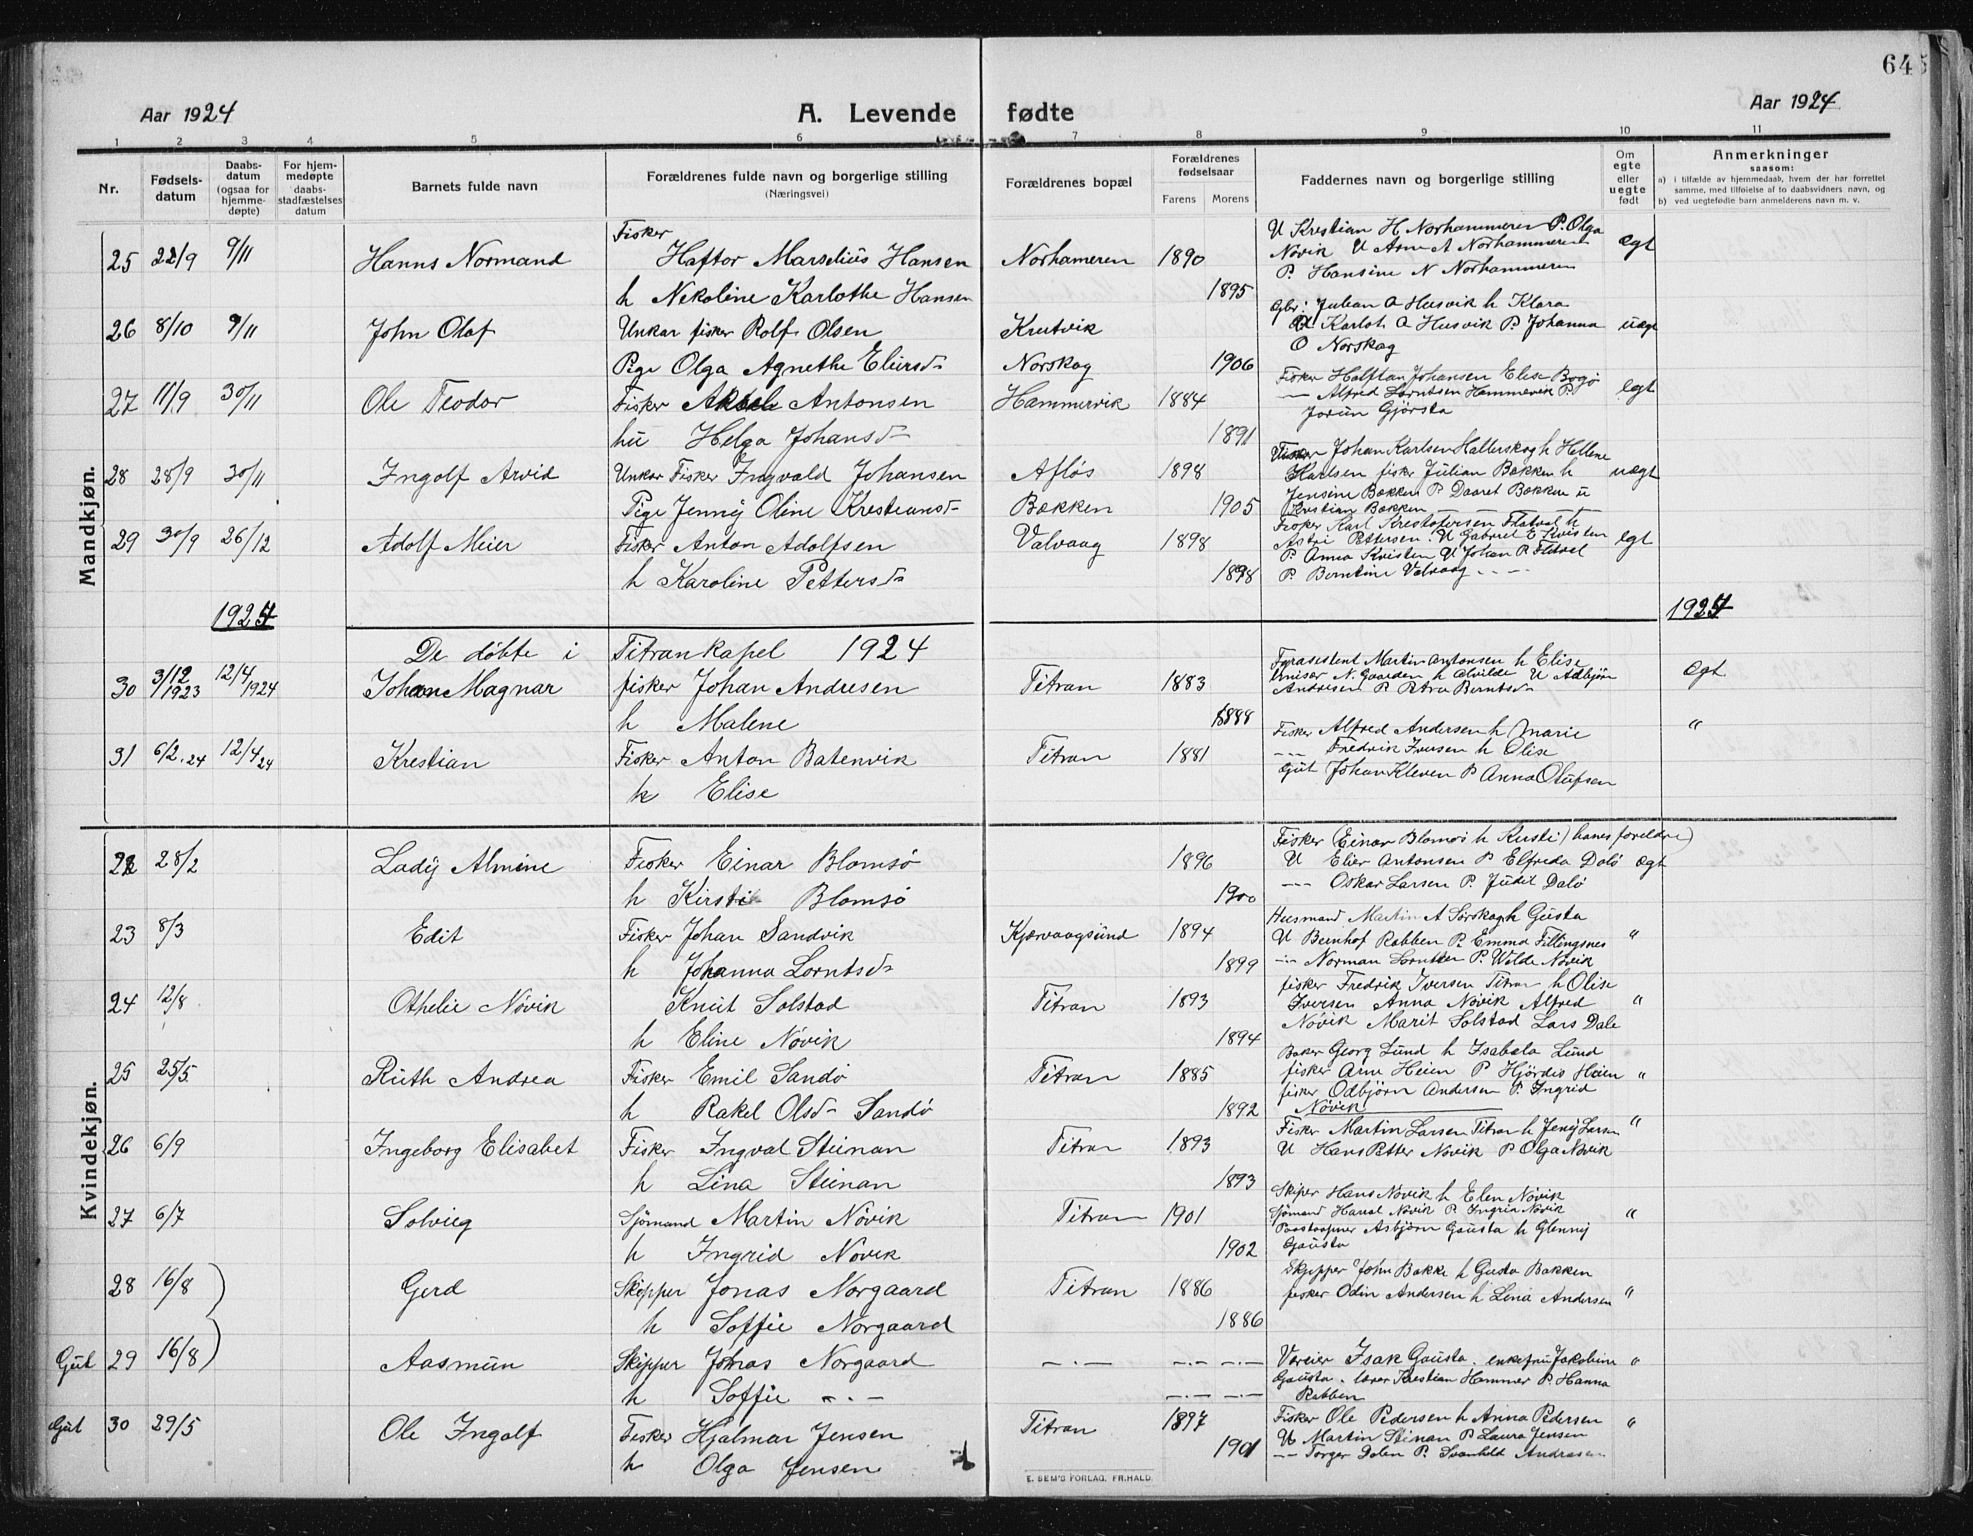 645
Aar 1924 A. Levende fødte Aar 1924
1 2 3 4 5 6 7 8 9 10 11
Nr. Fødselsdatum Daabsdatum (ogsaa for hjemmedøpte) For hjemmedøpte daabsstadfæstelses datum Barnets fulde navn Forældrenes fulde navn og borgerlige stilling (Næringsvei) Forældrenes bopæl Forældrenes fødselsaar Farens Morens Faddernes navn og borgerlige stilling Om egte eller uegte født Anmerkninger saasom: a) i tilfælde av hjemmedaab, hvem der har forrettet samme, med tilføielse af to daabsvidners navn, og b) ved uegtefødte barn anmelderens navn m. v.
Mandkjøn.
25 22/9 9/11 Hanns Normand Fisker Haftor Marselius Hansen Norhameren 1890 U Krestian H Norhammeren P. Olga ægt
h Nekoline Karlothe Hansen 1895 Növik U Arne A Norhammeren
P. Hansine N Norhammeren
26 8/10 9/11 John Olaf Unkar fisker Rolf Olsen Krutvik Gbr: Julian A Husvik h Klara
Pige Olga Agnethe Eliersd- Norskag 1906 U Karlot A Husvik P. Johanna uægt
O Norskag
27 11/9 30/11 Ole Teodor Fisker Antonsen Hammervik 1884 Fisker Halftan Johansen Elise Bogø egt
hu Helga Johansd- 1891 — Alfred Lorntsen Hammervik P.
Jorun Gjørsta
28 28/9 30/11 Ingolf Arvid Unkar Fisker Ingvald Johansen Afløs 1898 Johan Karlsen Hallerskog h Hellene
Pige Jenny Oline Krestiansd- Bækken 1905 Karlsen fisker Julian Bækken h uægt
Jensine Bækken P. Daaret Bækken u
Krestian Bækken
29 30/9 26/12 Adolf Meier Fisker Anton Adolfsen Valvaag 1898 Fisker Karl Krestofersen Flatval h
h Karoline Pettersd- 1898 Astri Pettersen. U Gabriel E Kvisten egt
P. Anna Kvisten U Johan P. Flatval
P. Berntine Valvaag - - -
1924 1924
De døbte i Titran kapel 1924
30 3/12 1923 12/4 1924 Johan Magnar fisker Johan Andresen Titran 1883 Fyrasistent Martin Antonsen h Elise ægt
h Malene 1888 N. Gaarden h Alvilde U Adbjørn
Andresen P. Petra Berntsd-
31 6/2.24 12/4 24 Krestian Fisker Anton Batenvik Titran 1881 Fisker Alfred Andersen h Marie "
h Elise --- Fredrik Iversen h Olise
Gut Johan Kleven P Anna Olufsen
Kvindekjøn.
22 28/2 Lady Almine Fisker Einar Blomsø 1896 Fisker (Einar Blomsø h Kirsti) hanes foreldre)
h Kirsti Blomsø 1900 U Elier Antonsen P Elfreda Dalø ægt
--- Oskar Larsen P. Judit Dalø
23 8/3 Edit Fisker Johan Sandvik Kjærvaagsund 1894 Husmand Martin A Sørskag h Gusta
h Johanna Lorntsd- 1899 U Bernhof Rabben P. Emma Fillingsnes "
--- Norman Lorntsen P. Wilde Növik
24 12/8 Othelie Növik Knut Solstad Titran 1893 fisker Fredrik Iversen Titran h Olise
h Eline Növik 1894 Iversen Anna Növik Alfred "
Növik Marit Solstad Lars Dale
25 25/5 Ruth Andrea Fisker Emil Sandø Titran 1885 Baker Georg Lund h Isabela Lund
h Rakel Olsd- Sandø 1892 fisker Arne Heien P Hjördis Heien "
fisker Odbjörn Andersen P. Ingrid
Növik
26 6/9 Ingeborg Elisabet Fisker Ingval Steinan Titran 1893 Fisker Martin Larsen Titran h Jeny Larsen "
h Lina Steinan 1893 U Hans Petter Növik P Olga Növik
27 6/7 Solveig Sjömand Martin Növik Titran 1901 Skiper Hans Növik h Elen Növik
h Ingrid Növik 1902 Sjömand Harral Növik P. Ingria Növik "
Asbjörn Gausta h Glenny
Gausta
28 16/8 Gerd Skipper Jonas Norgaard Titran 1886 Skipper John Bakke h Gusta Bakken
h Soffie Norgaard 1886 fisker Odin Andersen h Lina Andersen "
Gut 29 16/8 Aasmun Skipper Jonas Norgaard —.— —.— —.— Væreier Isak Gausta. enkefru Jakobine "
h Soffie —.— —.— —.— Gausta. lærer Krestian Hammer P. Hanna
Rabben
Gut 30 29/5 Ole Ingolf Fisker Hjalmar Jensen Titran 1897 Fisker Ole Pedersen h Anna Pedersen "
h Olga Jensen 1901 U Martin Stinan P Laura Jensen
--- Torger Dalen P. Svanhild Andresen
E. SEM'S FORLAG, FR.HALD.